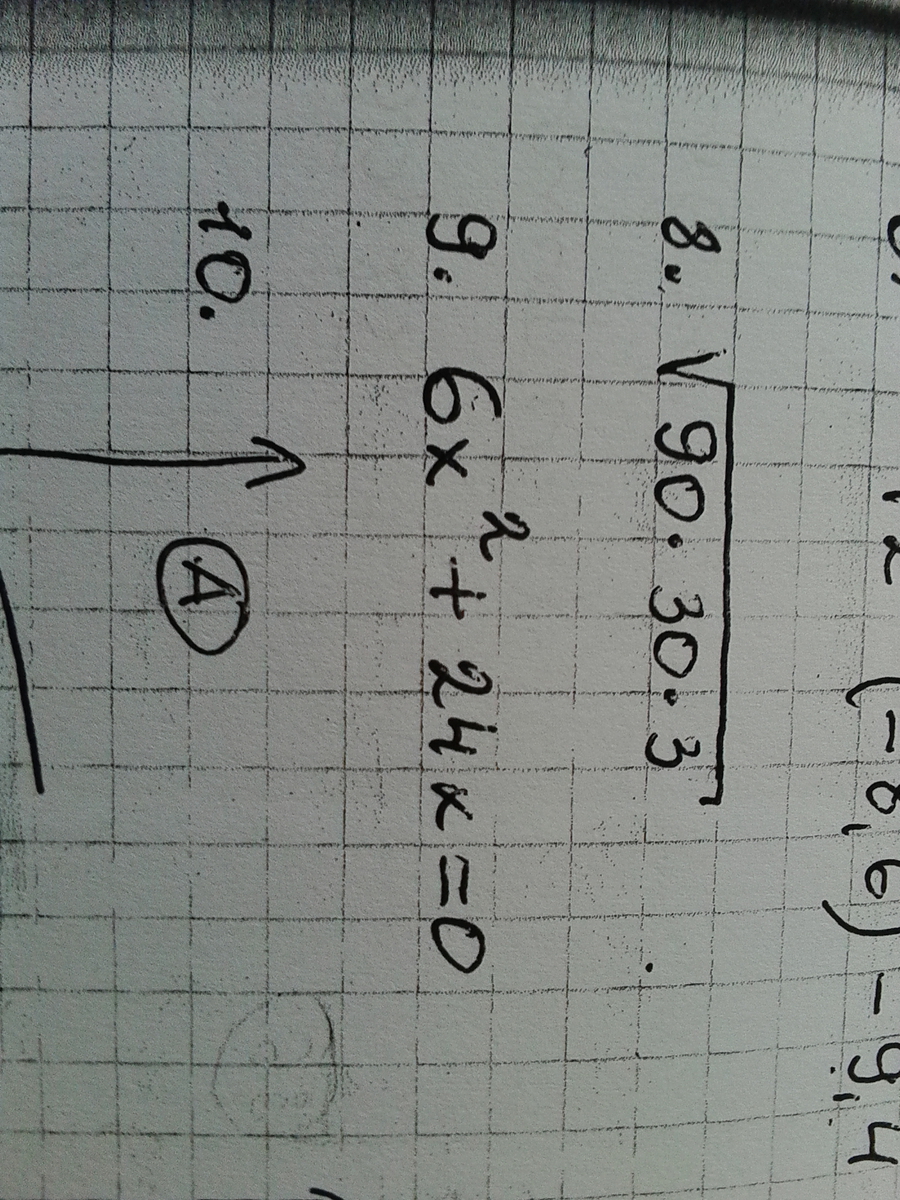 12 (-8,6) - 9,4
8. √90.30.3
9. 6x² + 24x = 0
10.
A